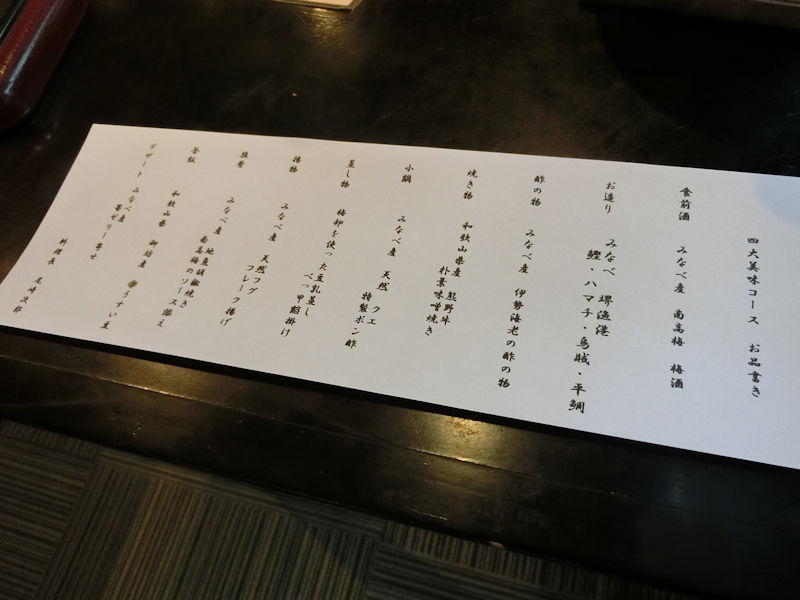 四大美味コース お品書き
食前酒 みなべ産 南高梅 梅酒
お造り みなべ 堺漁港
鰹・ハマチ・烏賊・平鯛
酢の物 みなべ産 伊勢海老の酢の物
焼き物 和歌山県産 熊野牛
朴葉味噌焼き
小鍋 みなべ産 天然 クエ
特製ポン酢
蒸し物 梅卵を使った豆乳蒸し
べっ甲餡掛け
揚物 みなべ産 天然フグ
フレーク揚げ
強肴 みなべ産 地鳥胡椒焼き
南高梅のソース添え
釜飯 和歌山県 御坊産 うすい豆
デザート みなべ産 苺ゼリー寄せ
料理長 尾崎次郎